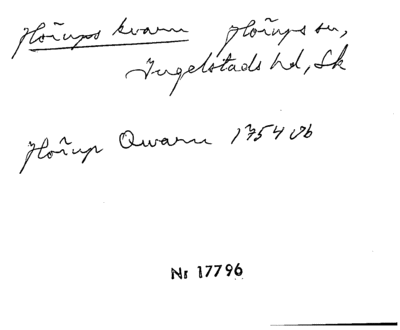 Hörups kvarn Hörups sn,
Ingelstads hd, Sk
Hörup Qwarn 1754 Vb
Nr 17796